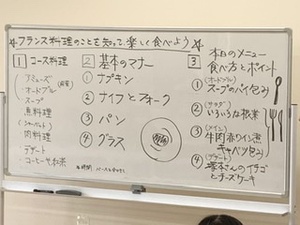 フランス料理のことを知って、楽しく食べよう
1 コース料理
アミューズ
オードブル
スープ
魚料理
(シャーベット)
肉料理
デザート
コーヒー 紅茶
2 基本のマナー
① ナプキン
② ナイフとフォーク
③ パン
④ グラス
3 本日のメニュー
食べ方とポイント
① (オードブル)
スープのパイ包み
② (サラダ)
いろいろな根菜
③ (メイン)
牛肉赤ワイン煮
キャベツ包み
④ (デザート)
塚本さんのイチゴ
とチーズケーキ